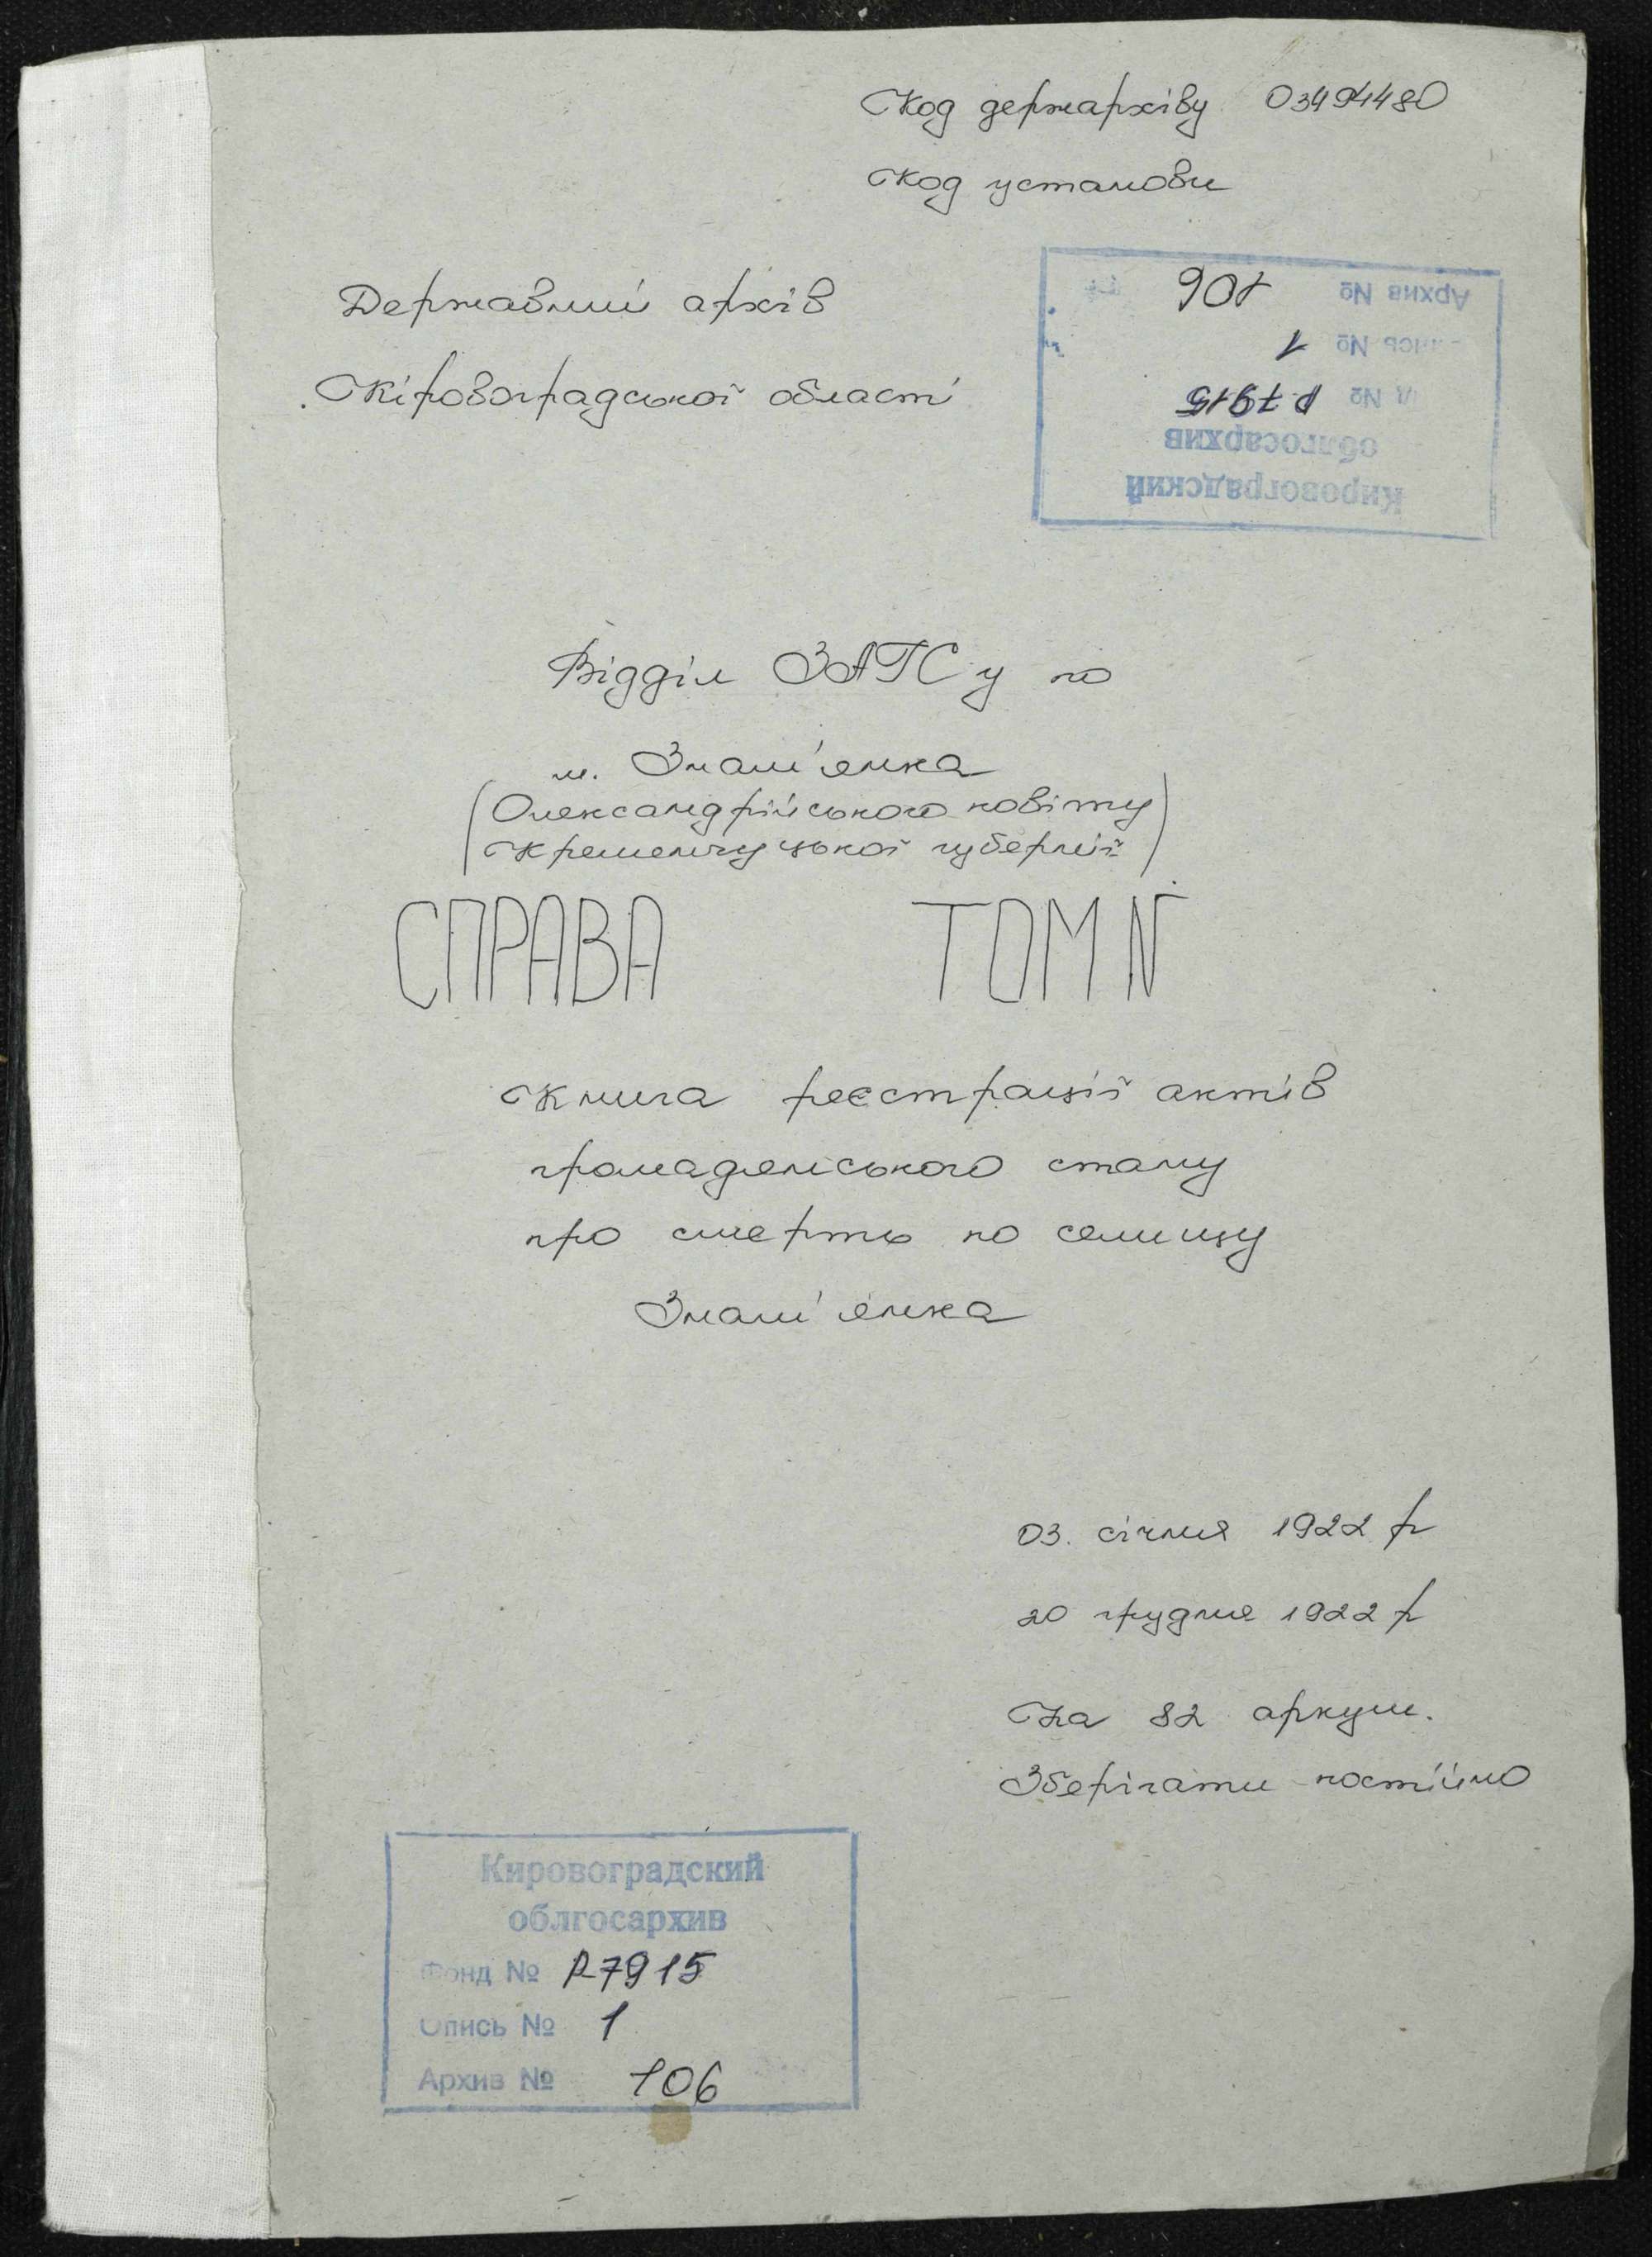 Код держархіву 03494480
Код установи
Державний архів
Кіровоградської області
Архив № 106
№ 1
№ Р-7915
облгосархив
Кировоградский
Відділ ЗАГСу по
м. Знам'янка
(Олександрійського повіту
Кременчуцької губернії)
СПРАВА ТОМ №
Книга реєстрації актів
громадянського стану
про смерть по селищу
Знам'янка
03. січня 1922 р
20 грудня 1922 р
На 82 аркуш.
Зберігати постійно
Кировоградский
облгосархив
Фонд № Р-7915
Опись № 1
Архив № 106